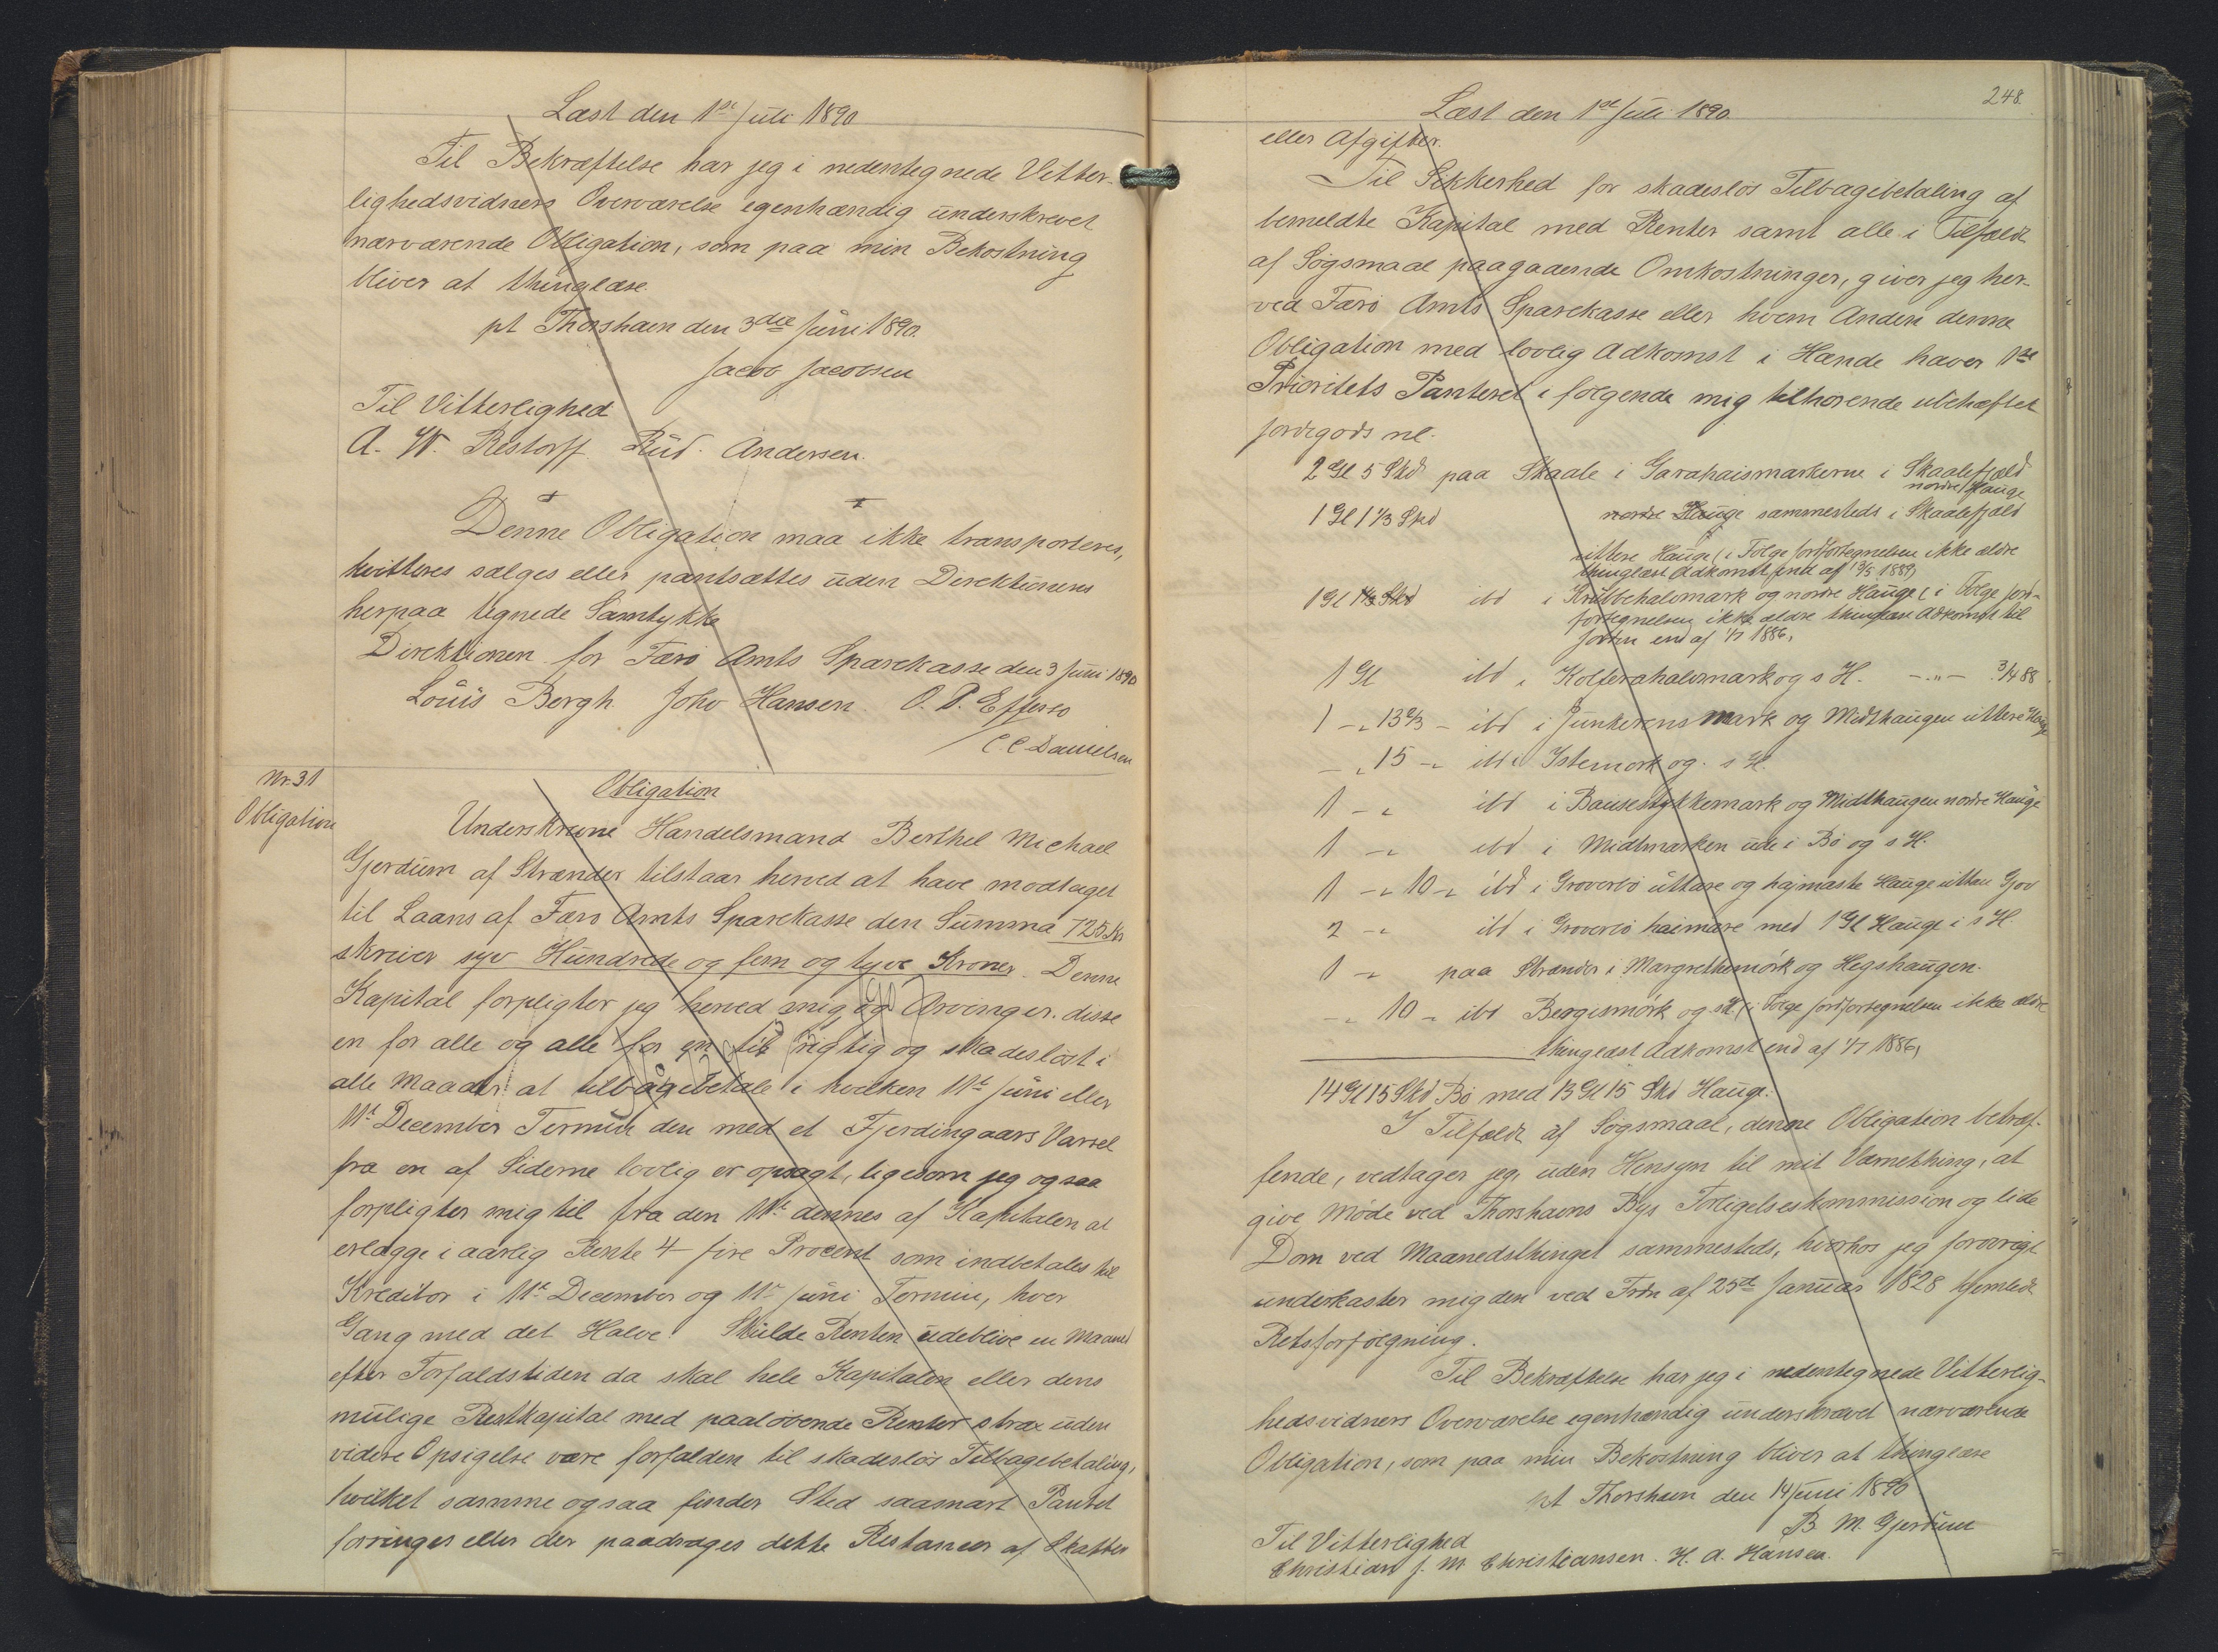 Læst den 1ste Juli 1890
Til Bekræftelse har jeg i nedentegnede Vitter-
lighedsvidners Overværelse egenhændig underskrevet
nærværende Obligation, som paa min Bekostning
bliver at thinglæse.
pt Thorshavn den 3die Juni 1890.
Jacob Jacobsen
Til Vitterlighed
A. W. Restorff Rud. Andersen.
Denne Obligation maa ikke transporteres,
kvitteres sælges eller pantsættes uden Direktionens
herpaa tegnede Samtykke
Direktionen for Færö Amts Sparekasse den 3 Juni 1890
Louis Bergh Johs Hansen O. P. Effersö
C C Danielsen
Nr. 31
Obligation
Obligation
Underskrevne Handelsmand Berthel Michael
Gjerdum af Strænder tilstaar herved at have modtaget
til Laans af Færö Amts Sparekasse den Summa 725 Kr
skriver syv Hundrede og fem og tyve Kroner. Denne
Kapital forpligter jeg herved mig og Arvinger. disse
en for alle og alle for en til rigtig og skadeslöst i
alle Maader at tilbagebetale i hvilken 11te Juni eller
11te December Termin den med et Fjerdingaars Varsel
fra en af Siderne lovlig er opsagt, ligesom jeg ogsaa
forpligter mig til fra den 11te dennes af Kapitalen at
erlægge i aarlig Rente 4 fire Procent som indbetales til
Kreditor i 11te December og 11te Juni Termin, hver
Gang med det Halve. Skulde Renten udeblive en Maaned
efter Forfaldstiden da skal hele Kapitalen eller dens
mulige Restkapital med paalöbende Renter strax uden
videre Opsigelse være forfalden til skadeslös Tilbagebetaling,
hvilket samme ogsaa finder Sted saasnart Pantet
forringes eller der paadrages dette Restancer af Skatter
248.
Læst den 1ste Juli 1890.
eller Afgifter.
Til Sikkerhed for skadeslös Tilbagebetaling af
bemeldte Kapital med Renter samt alle i Tilfælde
af Sögsmaal paagaaende Omkostninger, giver jeg her-
ved Færö Amts Sparekasse eller hvem Anden denne
Obligation med lovlig Adkomst i Hænde haver 1ste
Prioritets Panteret i fölgende mig tilhörende ubehæftet
Jordegods nl.
2 Gl 5 Skd paa Skaale i Garahaismarkerne i Skaalefjæld
nordre Hauge
1 Gl 1 1/3 Skd nordre Hauge sammesteds i Skaalefjæld
uttere Hauge (i Fölge Jordfortegnelsen ikke ældre
thinglæst Adkomst end af 13/5 1889)
1 Gl 1 1/3 Skd ibd i Krubbehalsmark og nordre Hauge (i Fölge Jord-
fortegnelsen ikke ældre thinglæst Adkomst til
Jorden end af 1/7 1886,
1 Gl ibd i Kolterahalsmark og s H. -"- 3/4 88
1 - " 13 2/3 - ibd i Junkerens Mark og Midthaugen uttere Hauge
- " 15 - " ibd i Istemörk og s H.
1 - " ibd i Bausestykkemark og Midthaugen nordre Hauge
1 - " ibd i Midtmarken ude i Bö og s H.
1 - " 10 - " ibd i Groverbö uttare og hajmaste Hauge uttan Gjov
2 - " ibd i Groverbö haimare med 1 Gl Hauge i s H.
1 - " paa Strænder i Margrethemörk og Hegshaugen.
- " 10 - ibd Bergismörk og s H (i Fölge Jordfortegnelsen ikke ældre
thinglæst Adkomst end af 1/7 1886,
14 Gl 15 Skd Bö med 13 Gl 15 Skd Hauge.
I Tilfælde af Sögsmaal, denne Obligation betræf-
fende, vedtager jeg, uden Hensyn til mit Værnething, at
give Möde ved Thorshavns Bys Forligelseskommission og lide
Dom ved Maanedsthinget sammesteds, hvorhos jeg forövrigt
underkaster mig den ved Frdn af 25de Januar 1828 hjemlede
Retsforfölgning.
Til Bekræftelse har jeg i nedentegnede Vitterlig-
hedsvidners Overværelse egenhændig underskrevet nærværende
Obligation, som paa min Bekostning bliver at thinglæse
pt Thorshavn den 14 Juni 1890
B. M. Gjerdum
Til Vitterlighed
Christian J. M Christiansen. H. A. Hansen.